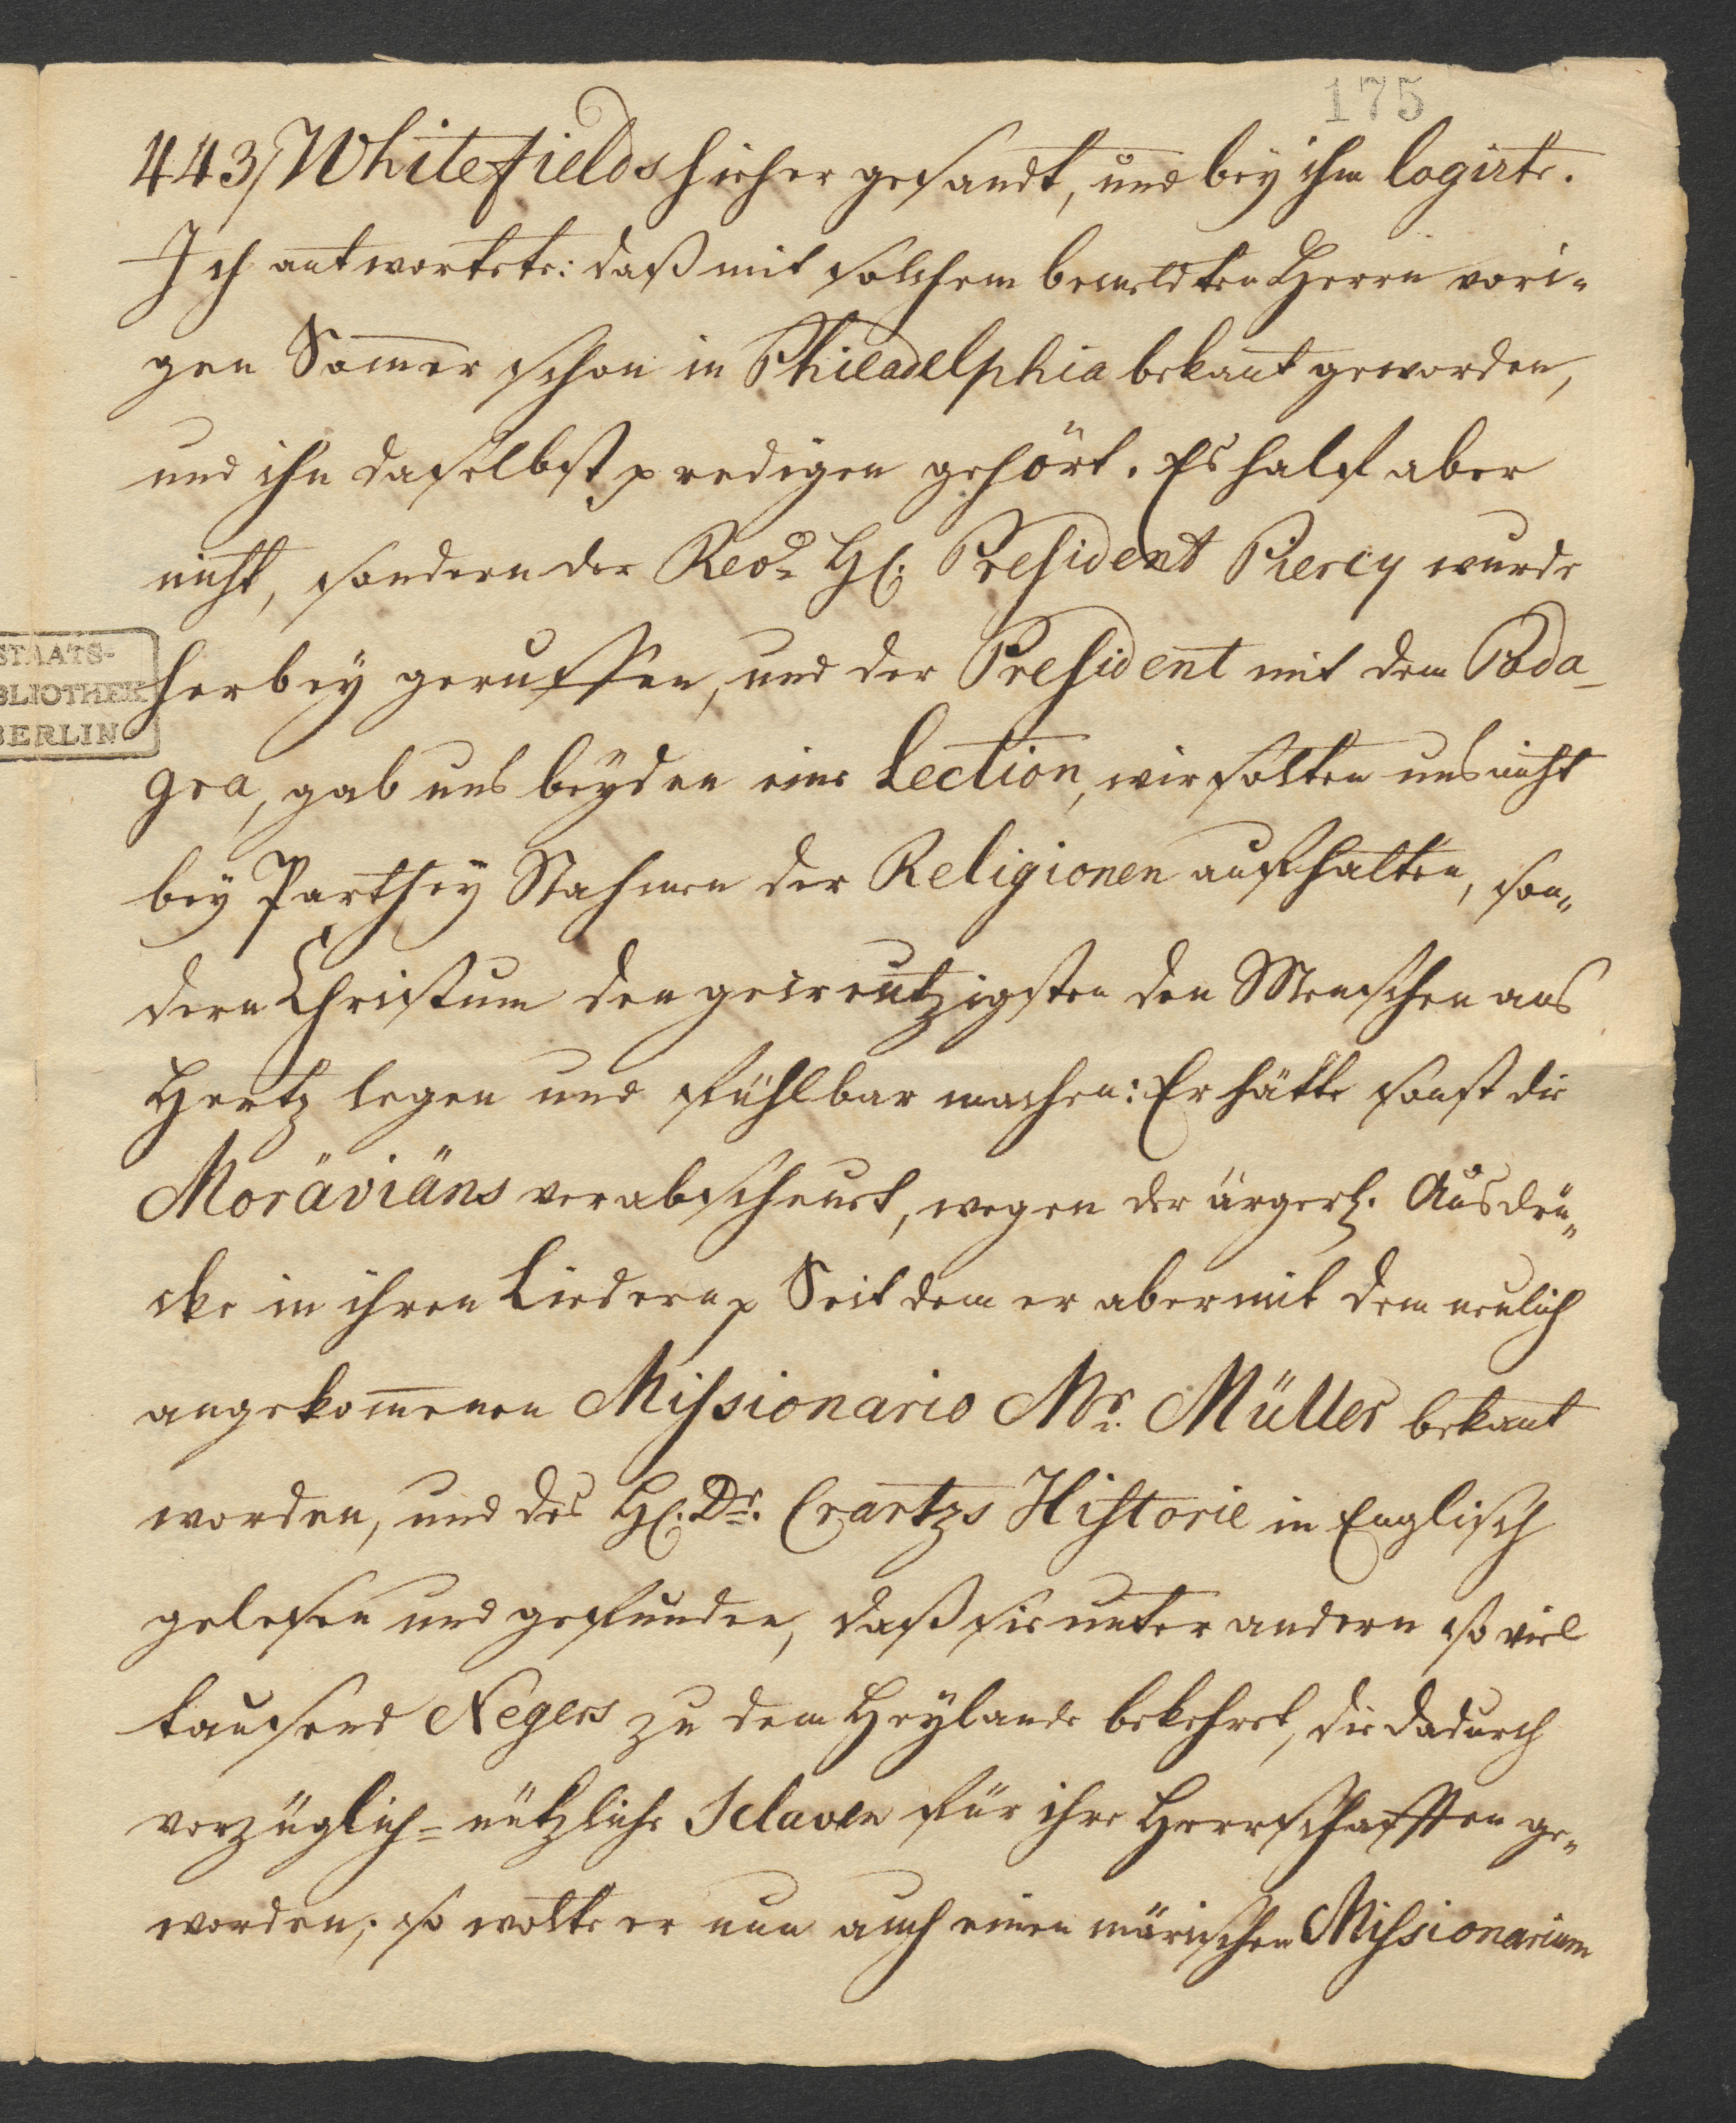 175
443/ Whitefields hieher gesandt, und bey ihm logirte.
Ich antwortete: daß mit solchem bemeldten Herrn vori-
gen Som̅er schon in Philadelphia bekant geworden,
und ihn daselbst predigen gehört. Es half aber
nicht, sondern der Revd. H. President Piercy wurde
STAATS-
BLIOTHEK
BERLIN
herbey geruffen, und der President mit dem Poda-
gra, gab uns beyden eine Lection, wir solten uns nicht
bey Parthey Nahmen der Religionen aufhalten, son-
dern Christum den gecreutzigsten den Menschen ans
Hertz legen und fühlbar machen: Er hätte sonst die
Moräviäns verabscheuet, wegen der ärgerl. Ausdrü-
cke in ihren Liedern p Seit dem er aber mit dem neulich
angekom̅enen Missionario Mr. Müller bekant
worden, und des H. Dr. Crantzs Historie in Englisch
gelesen und gefunden, daß sie unter andern so viel
tausend Negers zu dem Heylande bekehret, die dadurch
vorzüglich-nützliche Sclaven für ihre Herrschafften ge-
worden; so wolte er nun auch einen märischen Missionarium